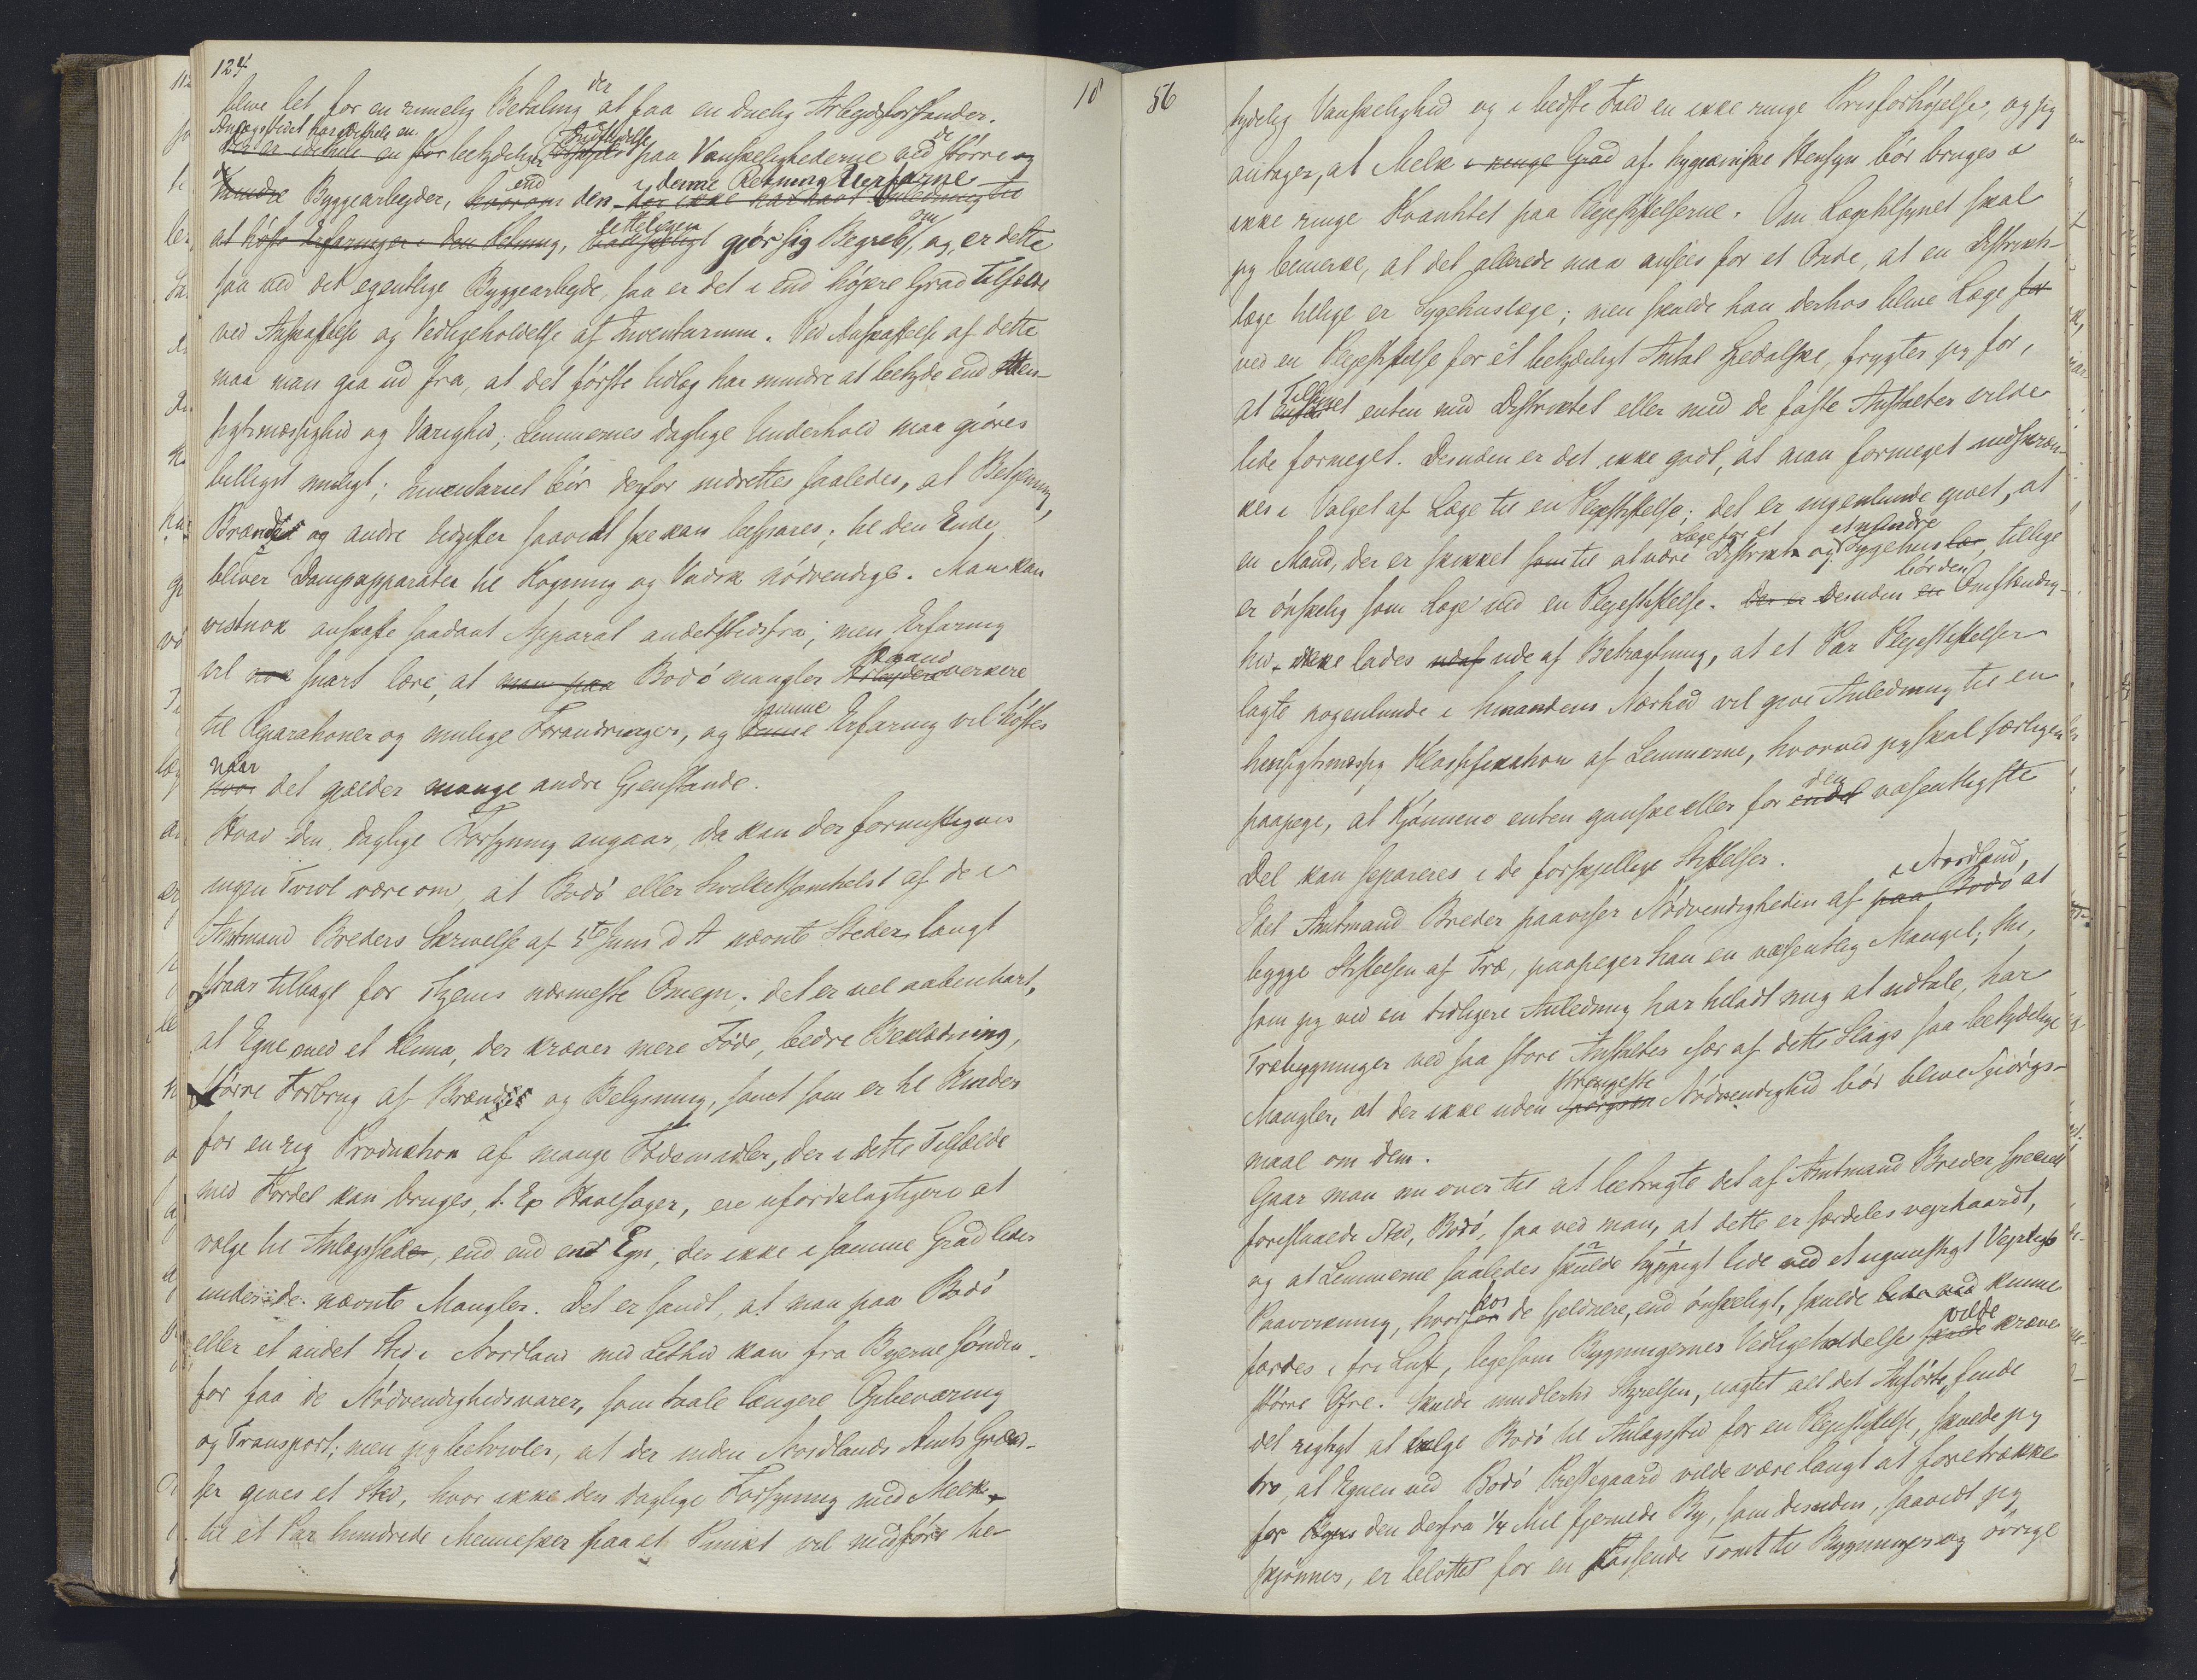 124
18
blive let for en rimelig Betaling der at faa en duelig Arbejdsforstander.
Anlægsstedet har idethele en betydelig Indflydelse paa Vanskelighederne ved de större og
mindre Byggearbejder, end den i denne Retning Uerfarne
letteligen gjör sig Begreb om, og, er dette
saa ved det egentlige Byggearbejde, saa er det i end höjere Grad tilfelde
ved Anskaffelse og Vedligeholdelse af Inventarium. Ved Anskaffelse af dette
maa man gaa ud fra, at det förste Udlæg har mindre at betyde end Hen-
sigtsmæssighed og Varighed; Lemmernes daglige Underhold maa gjöres
billigst muligt; Inventariet bör derfor indrettes saaledes, at Betjening,
Brændsel og andre Udgifter saavidt ske kan besparer; til den Ende
bliver Dampapparater til Kogning og Vadsk nödvendige. Man kan
vistnok anskaffe saadant Apparat andetstedsfra; men Erfaring
vil snart lære, at Bodö mangler Haandverkere
til Reparationer og mulige Forandringer, og samme Erfaring vil höstes
naar det gjelder mange andre Gjenstande.
Hvad den daglige Forsyning angaar, da kan der formentligen
ingen Tvivl være om, at Bodö eller hvilketsomhelst af de i
Amtmand Breders Skrivelse af 5te Juni d A nævnte Steder langt
staar tilbage for Thjems nærmeste Omegn. Det er vel aabenbart,
at Egne med et Klima, der kræver mere Föde, bedre Beklædning,
större Forbrug af Brændsel og Belysning, samt som er til Hinder
for en rig Produktion af mange Födemidler, der i dette Tilfælde
med Fordel kan bruges, t. Ex Havesager, ere ufordelagtigere at
vælge til Anlægssted, end en Egn, der ikke i samme Grad lider
under de nævnte Mangler. Det er sandt, at man paa Bodö
eller et andet Sted i Nordland med Lethed kan fra Byerne sönden-
for faa de Nödvendighedsvarer, som taale længere Opbevaring
og Transport; men jeg betvivler, at der inden Nordlands Amts Græn-
ser gives et Sted, hvor ikke den daglige Forsyning med Melk
til et Par hundrede Mennesker paa et Punkt vil medföre be-
56
tydelig Vanskelighed og i bedste Fald en ikke ringe Prisforhöjelse, og jeg
antager, at Melk i ringe Grad af hygieiniske Hensyn bör bruges i
ikke ringe Kvantitet paa Plejestiftelserne. Om Lægetilsynet skal
jeg bemerke, at det allerede maa ansees for et Onde, at en Distrikts-
læge tillige er Sygehuslæge; men skulde han derhos blive Læge
ved en Plejestiftelse for et betydeligt Antal Spedalske, frygter jeg for,
at Tilsynet enten med Distriktet eller med de faste Anstalter vilde
lide formeget. Desuden er det ikke godt, at man formeget indskræn-
kes i Valget af Læge til en Plejestiftelse; det er ingenlunde givet, at
en Mand, der er skikket til at være Læge for et Distrikt og et mindre Sygehus, tillige
er önskelig som Læge ved en Plejestiftelse. Desuden bör den Omstændig-
hed ikke lades ude af Betragtning, at et Par Plejestiftelser
lagte nogenlunde i hinandens Nærhed vil give Anledning til en
hensigtsmæssig Klassifikation af Lemmerne, hvorved jeg skal særligen
paapege, at Kjönnene enten ganske eller for den væsentligste
Del kan separeres i de forskjellige Stiftelser.
Idet Amtmand Breder paaviser Nödvendigheden af i Nordland, at
bygge Stiftelsen af Træ, paapeger han en væsentlig Mangel; thi,
som jeg ved en tidligere Anledning har tilladt mig at udtale, har
Træbygninger ved saa store Anstalter især af dette Slags saa betydelige
Mangler, at der ikke uden strengeste Nödvendighed bör blive Spörgs-
maal om dem.
Gaar man nu over til at betragte det af Amtmand Breder specielt
foreslaaede Sted, Bodö, saa ved man, at dette er særdeles vejrhaardt,
og at Lemmerne saaledes skulde hyppigt lide ved et ugunstigt Vejrligs
Paavirkning, hvorhos de sjeldnere, end önskeligt, skulde kunne
færdes i fri Luft, ligesom Bygningernes Vedligeholdelse vilde kræve
större Ofre. Skulde imidlertid Styrelsen, uagtet alt det Anförte, finde
det rigtigt at vælge Bodö til Anlægssted for en Plejestiftelse, skulde jeg
tro, at Egnen ved Bodö Prestegaard vilde være langt at foretrække
for den derfra 1/4 Mil fjernede By, som desuden, saavidt jeg
skjönner, er blottet for en passende Tomt til Bygninger og övrige